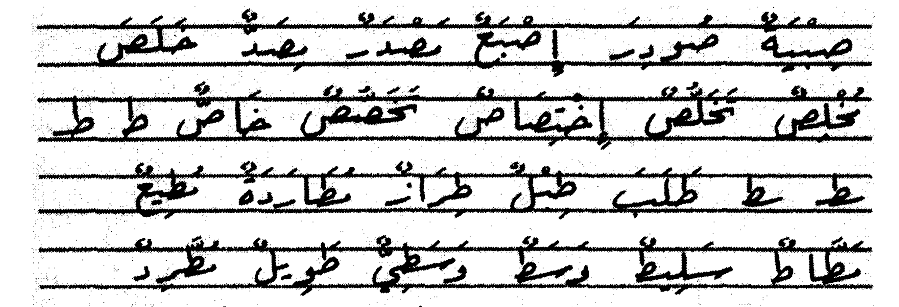 صِبْيَةٌ صُودِرَ إِصْبَعٌ مَصْدَرٌ يَصُدُّ خَلَصَ
مُخْلِصٌ تَخَلُّصٌ إِخْتِصَاصٌ تَخَصُّصٌ خَاصٌّ ط ط
ط ط طَلَبَ طِبْلٌ طِرَازٌ مُطَارَدَةٌ مُطِيعٌ
مَطَّاطٌ سَلِيطٌ وَسَطٌ وَسَطِيٌّ طَوِيلٌ مُطَّرِدٌ